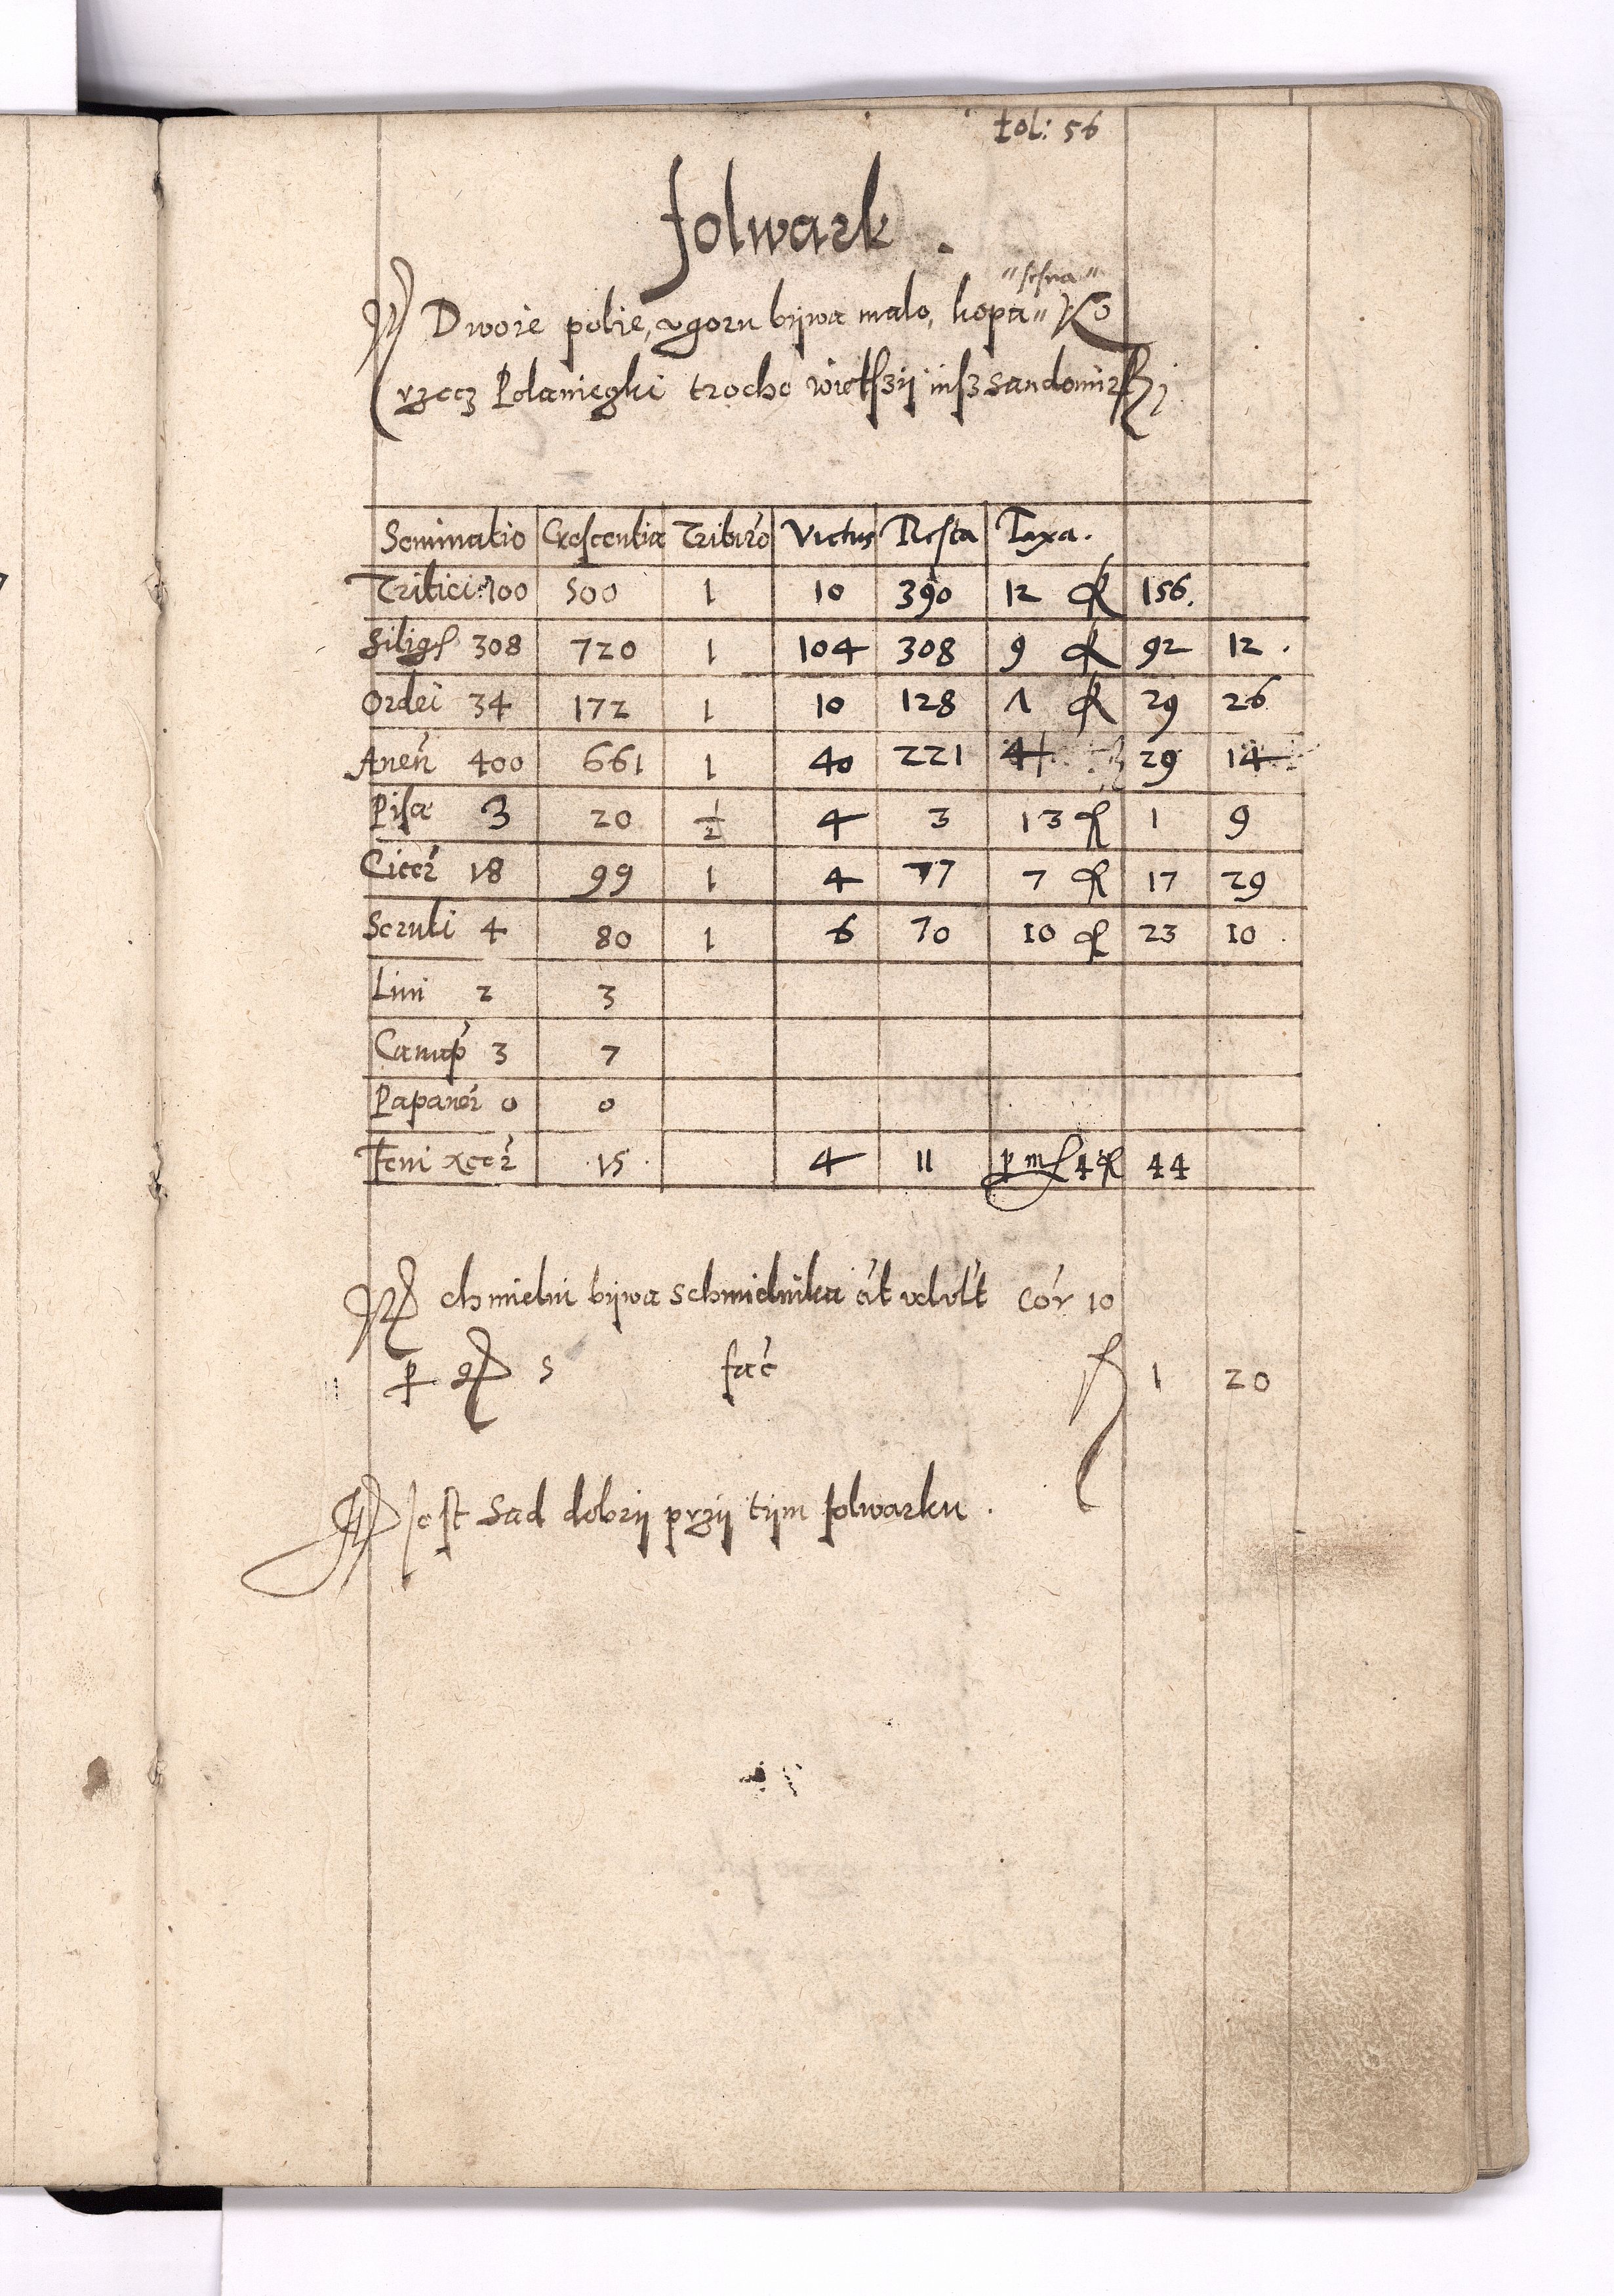 fol: 56
folwark.
Dwoie polie, vgoru bywa malo, kopa Ko
rzecz Polanieczki trochę więtſzy niſz sandomirſki
Seminatio Creſcentia Tritur̃o Victus Reſta Taxa.
Tritici 100 500 1 10 390 12 156.
Silig 308 720 1 104 308 9 92 12.
Ordei 34 172 1 10 128 29 26
Aueñ 400 661 1 40 221 4 29 14
Piſa 3 20 1/2 4 3 13 1 9
Cicer̃ 18 99 1 4 77 7 17 29
Seruti 4 80 1 6 70 10 23 10.
Lini 2 3
Canap̃ 3 7
Papauer̃ 0 0
Feni 15 4 11 4 44
chmieliu bywa schmielnika cor̃ 10
5 fac̃ 1 20
Jeſt Sad dobry przy tym folwarku.